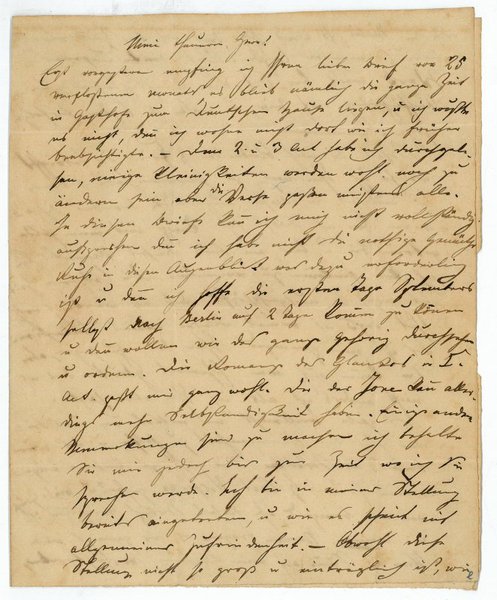 Mein theurer Herr!
Erst vorgestern empfing ich Ihren lieben Brief vom 25
verflossenen Monats es blieb nämlich die ganze Zeit
im Gasthofe zum Deutschen Hause liegen, u ich wußte
es nicht den ich wohne nicht dort wie ich früher
beabsichtigte. – Den 2. u 3 Act habe ich durchgele-
sen, einige Kleinigkeiten werden wohl noch zu
ändern sein aber die Verse passen meistens alle.
In diesem Briefe kan ich mich nicht vollständig
aussprechen den ich habe nicht die nöthige Gemüths
Ruhe in diesem Augenblick was dazu erforderlich
ist u den ich hoffe die ersten Tage Septembers
selbst nach Berlin auf 2 Tage komen zu könen
u dan wollen wir das ganze gehörig durchsehen
u ordnen. Die Romanze des Glaukos im I.
Act. paßt mir ganz wohl. Die der Jone kan aller-
dings mehr Selbständigkeit haben. Einige andere
Bemerkungen sind zu machen ich behalte
Sie mir jedoch bis zur Zeit wo ich Sie
sprechen werde. Ich bin in meiner Stellung
bereits eingetreten, u wie es scheint mit
allgemeiner Zufriedenheit. – Obwohl diese
Stellung nicht so groß u einträglich ist, wie